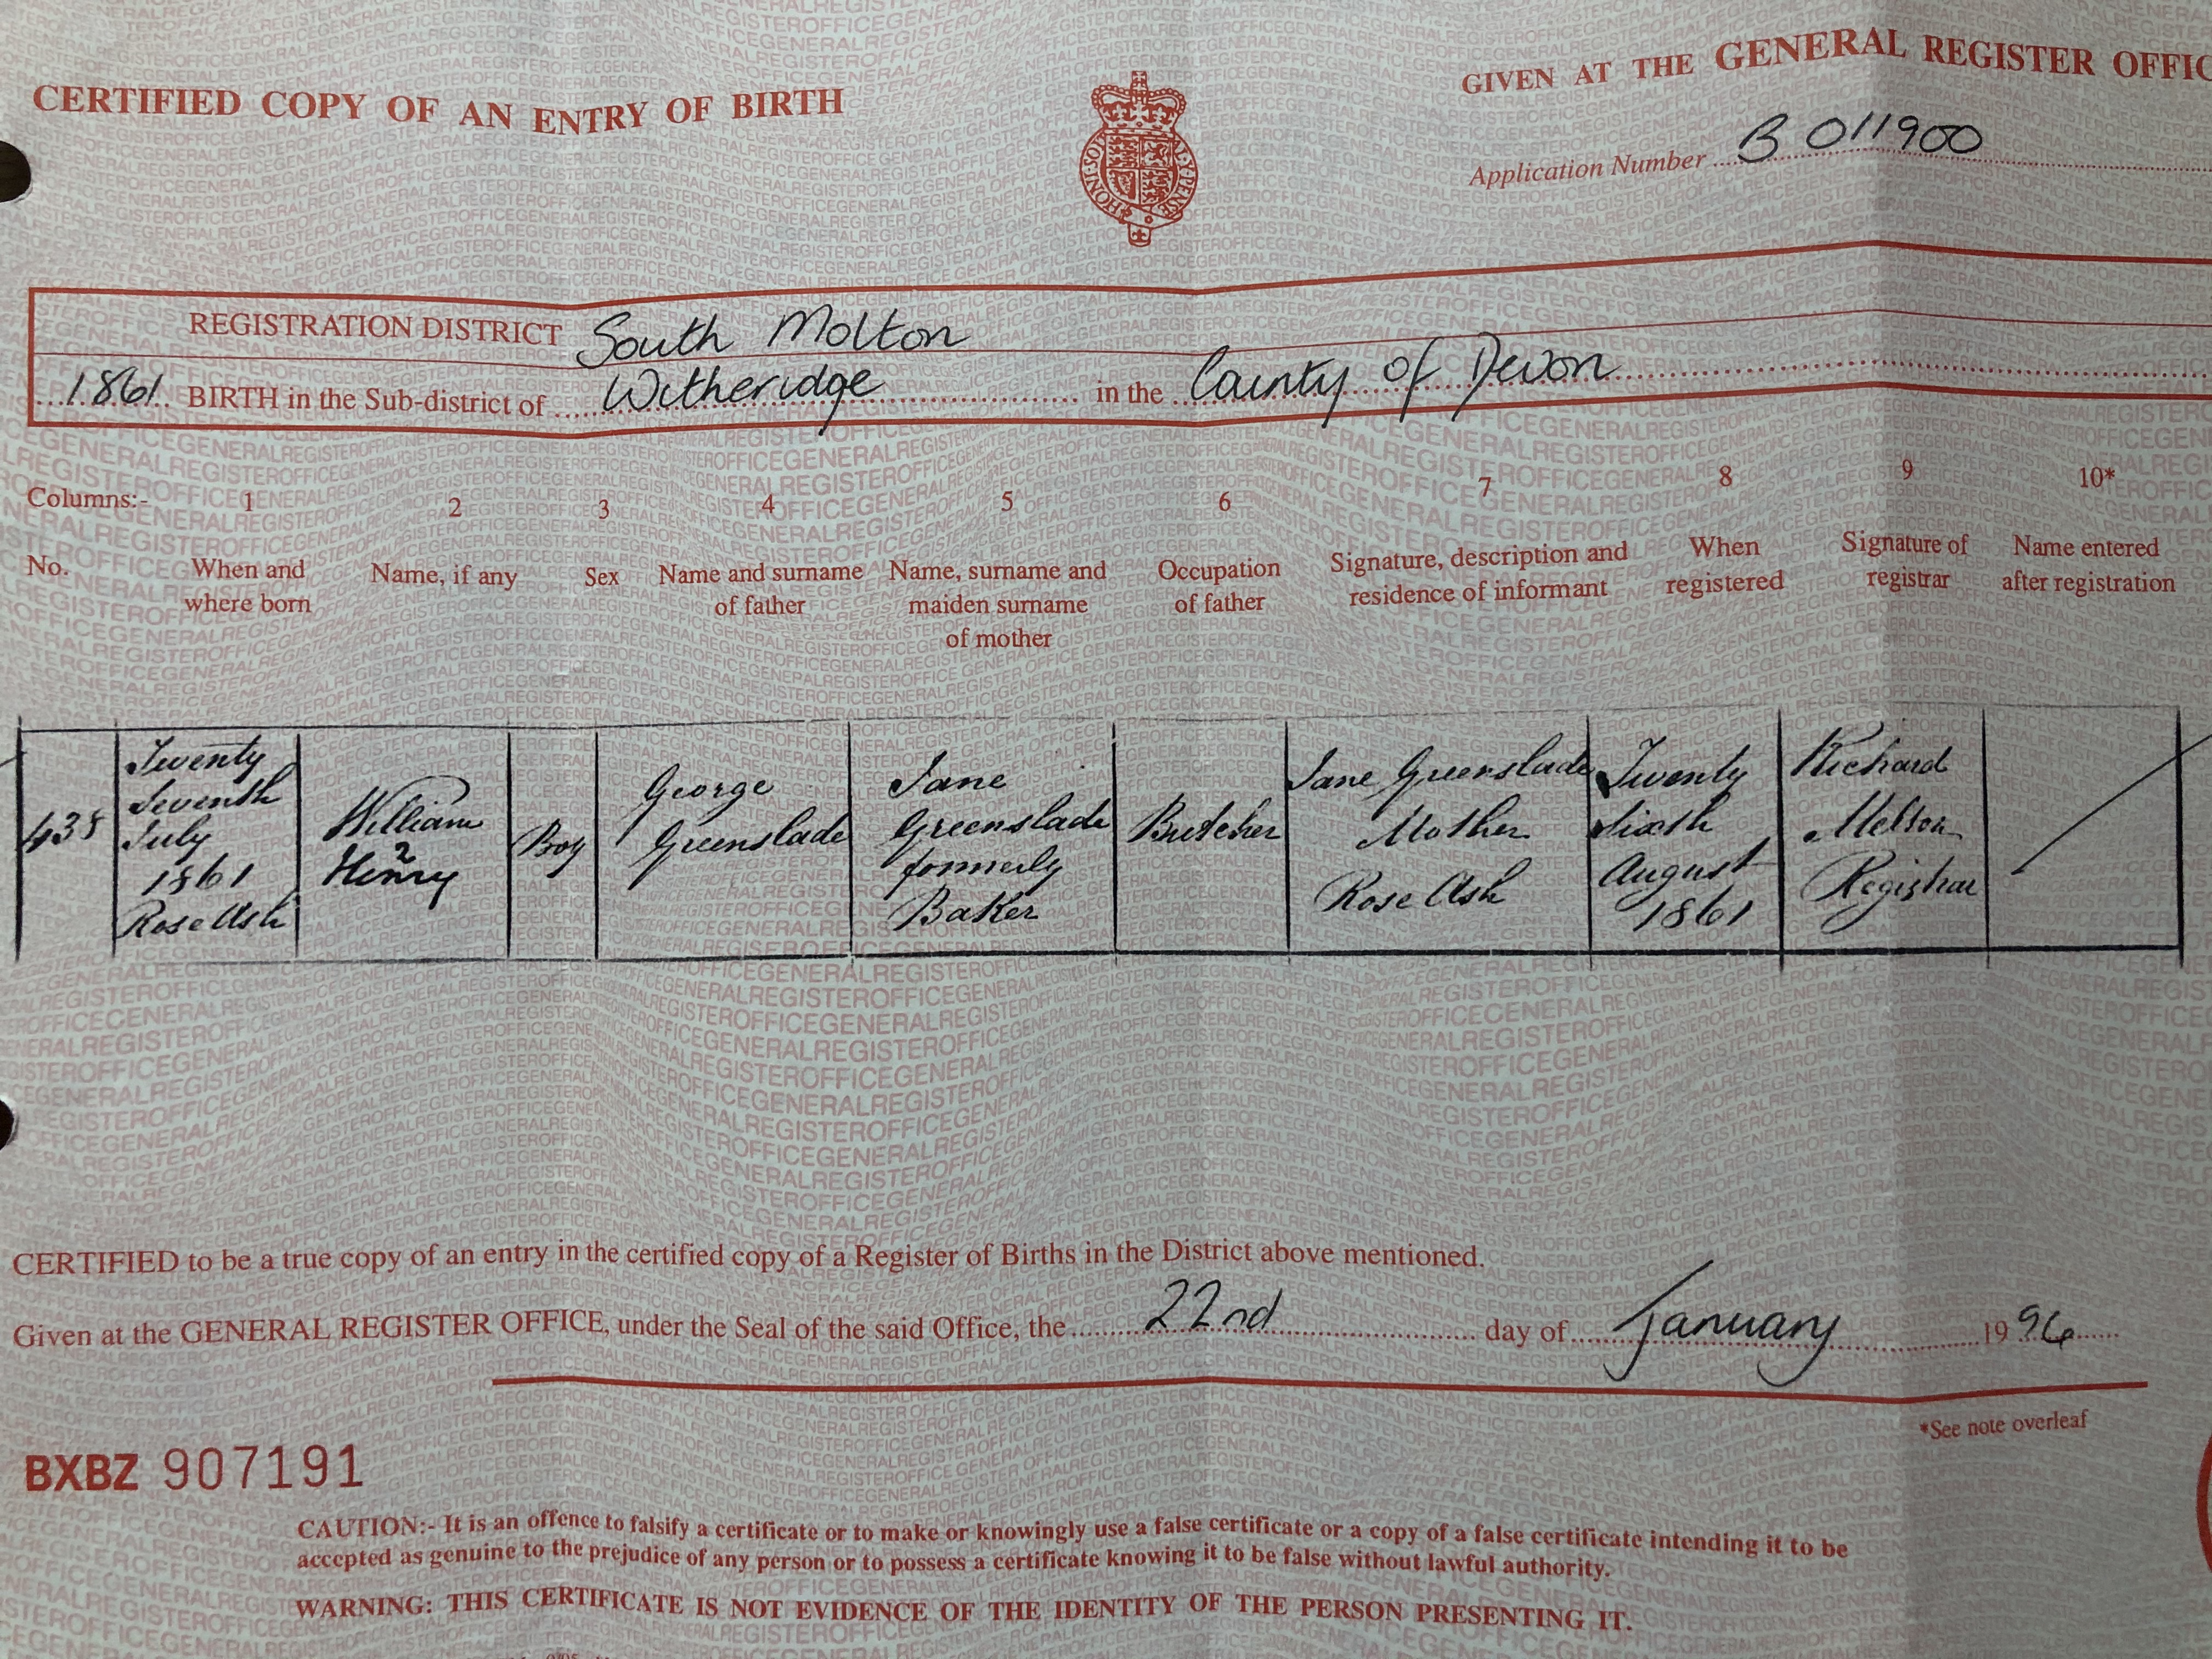 CERTIFIED COPY OF AN ENTRY OF BIRTH
GIVEN AT THE GENERAL REGISTER OFFIC
Application Number B 011900
HONI·SOI AL·Y·PENSE
REGISTRATION DISTRICT South Molton
1861 BIRTH in the Sub-district of Witheridge in the County of Devon
Columns:- 1 2 3 4 5 6 7 8 9 10*
No.
When and
where born
Name, if any
Sex
Name and surname
of father
Name, surname and
maiden surname
of mother
Occupation
of father
Signature, description and
residence of informant
When
registered
Signature of
registrar
Name entered
after registration
438
Twenty
Seventh
July
1861
Rose Ash
William
Henry
Boy
George
Greenslade
Jane
Greenslade
formerly
Baker
Butcher
Jane Greenslade
Mother
Rose Ash
Twenty
Sixth
August
1861
Richard
Melton
Registrar
CERTIFIED to be a true copy of an entry in the certified copy of a Register of Births in the District above mentioned.
Given at the GENERAL REGISTER OFFICE, under the Seal of the said Office, the 22nd day of January 1996
*See note overleaf
BXBZ 907191
CAUTION:- It is an offence to falsify a certificate or to make or knowingly use a false certificate or a copy of a false certificate intending it to be
accepted as genuine to the prejudice of any person or to possess a certificate knowing it to be false without lawful authority.
WARNING: THIS CERTIFICATE IS NOT EVIDENCE OF THE IDENTITY OF THE PERSON PRESENTING IT.